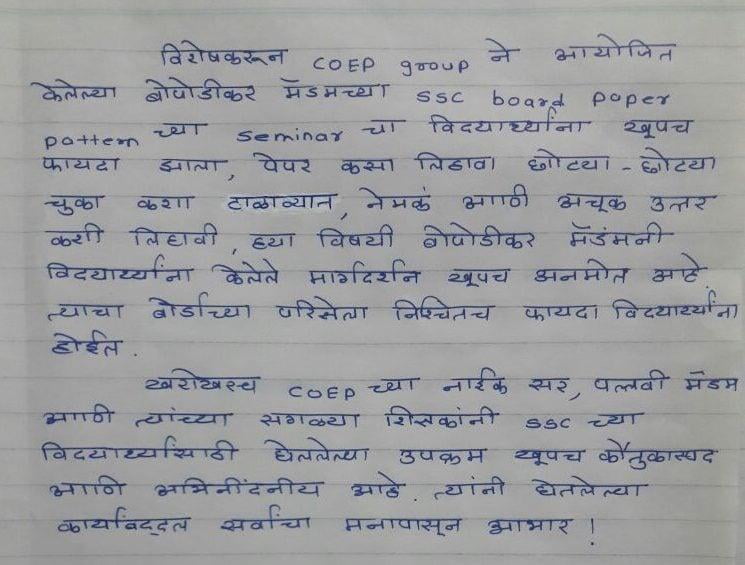 विशेषकरून COEP group ने आयोजित
केलेल्या बोपोडीकर मॅडमच्या SSC board paper
pattern च्या seminar चा विदयार्थ्यांना खूपच
फायदा झाला, पेपर कसा लिहावा छोटया - छोटया
चुका कशा टाळाव्यात, नेमकं आणि अचूक उत्तर
कशी लिहावी, ह्या विषयी बोपोडीकर मॅडंमनी
विदयार्थ्यांना केलेले मार्गदर्शन खूपच अनमोल आहे.
त्याचा बोर्डाच्या परिक्षेला निश्चितच फायदा विदयार्थ्यांना
होईल.
खरोखरच COEP च्या नाईक सर, पल्लवी मॅडम
आणि त्यांच्या सगळ्या शिक्षकांनी SSC च्या
विदयार्थ्यांसाठी घेतलेल्या उपक्रम खूपच कौतुकास्पद
आणि अभिनंदनीय आहे. त्यांनी घेतलेल्या
कार्याबद्दल सर्वांचा मनापासून आभार !